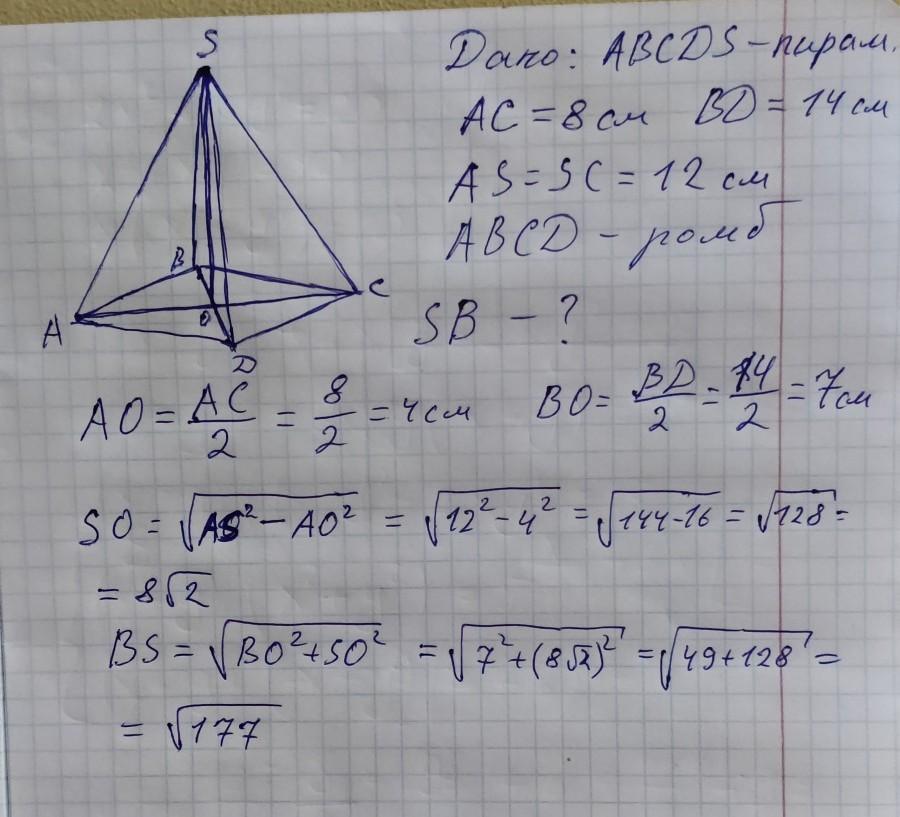 S
Дано: ABCDS - пирам.
AC = 8 см BD = 14 см
AS = SC = 12 см
ABCD - ромб
B
C
SB - ?
A
O
D
AO = AC/2 = 8/2 = 4 см BO = BD/2 = 14/2 = 7 см
SO = √(AS² - AO²) = √(12² - 4²) = √(144-16) = √128 =
= 8√2
BS = √(BO² + SO²) = √(7² + (8√2)²) = √(49 + 128) =
= √177